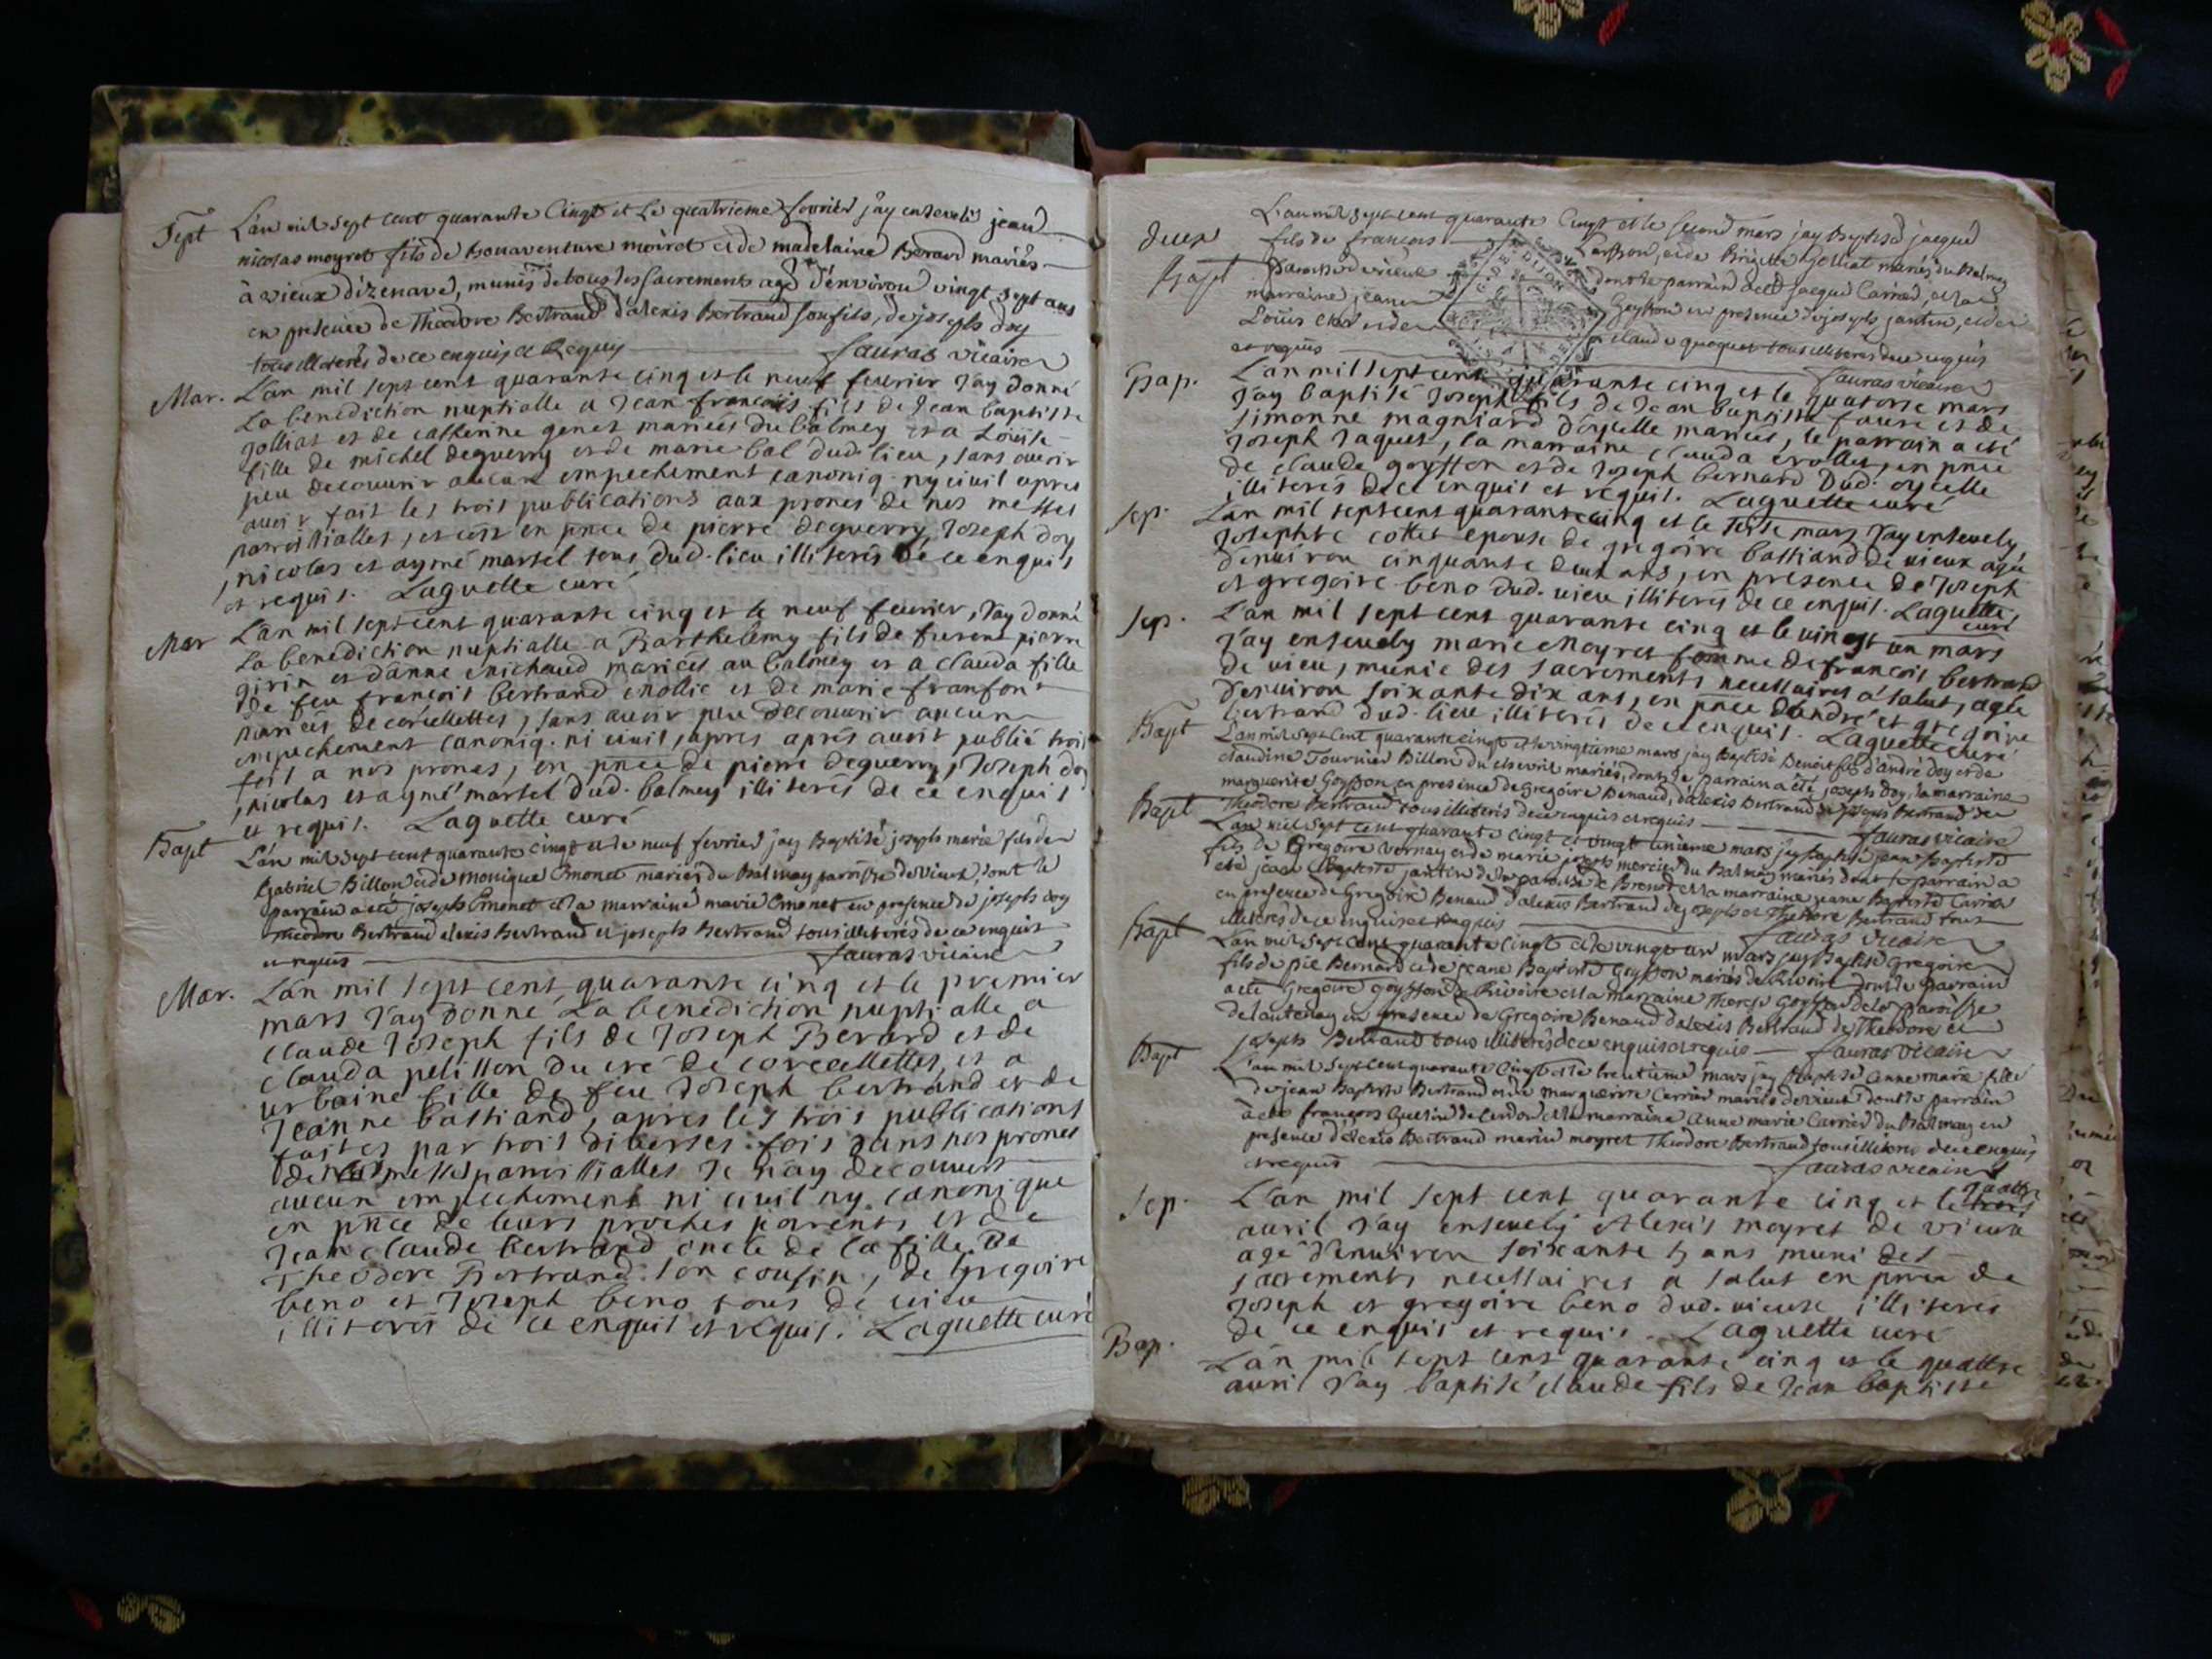 Sept L'an mil sept cent quarante Cinqt et Le quatrieme fevrier j'ay ensevelis jean
nicolas moyret fils de Bonaventure moiret et de madelaine Berard mariés
à vieux d'izenave, munis de tous les sacrements agé d'environ vingt sept ans
en presence de Theodore Bertrand d'alexis Bertrand son fils, de joseph doy
tous illiterés de ce enquis et Requis Fauras vicaire
Mar. L'an mil sept cent quarante cinq et le neuf feurier J'ay donné
La benediction nuptialle a Jean francois fils de Jean baptiste
golliat et de catherine genet mariéés du balmey et a Loüise
fille de michel deguerry et de marie bal dud. lieu, sans auoir
peu decouurir aucun empechement canoniq. ny ciuil apres
auoir fait les trois publications aux prones de nos messes
parroissialles, et cest en pnce de pierre deguerry, Joseph doy
, nicolas et aymé martel tous dud. lieu illiterés de ce enquis
et requis. Laguette curé
Mar L'an mil sept cent quarante cinq et le neuf feurier, J'ay donné
La benediction nuptialle a Barthelemy fils de furent pierre
girin et d'anne michaud mariéés au balmey et a clauda fille
de feu francois bertrand mollie et de marie franfon
mariéés de corcellettes, sans auoir peu decouurir aucun
empechement canoniq. ni ciuil, apres aprés auoir publié trois
fois a nos prones, en pnce de pierre deguerry, Joseph doy
, nicolas et aymé martel dud. balmey illiterés de ce enquis
et requis. Laguette curé
Bapt L'an mil sept cent quarante cinqt et le neuf fevrier j'ay Baptisé joseph marie fils de
Gabriel Billon et de monique Emonet mariés du Balmay parroisse de vieux, dont le
parrain a eté joseph Emonet et la marraine marie Emonet en presence de joseph doy
Theodore Bertrand alexis Bertrand et joseph Bertrand tous illiterés de ce enquis
et requis Fauras vicaire
Mar. L'an mil sept cent quarante cinq et le premier
mars J'ay donné La benediction nuptialle a
claude Joseph fils de Joseph Berard et de
clauda pelisson du cré de corcellettes, et a
urbaine fille de feu Joseph bertrand et de
Jeanne bastiand, apres les trois publications
faites par trois diuerses fois dans nos prones
de nos messes parroissialles Je n'ay decouuert
aucun empechement ni ciuil ny canonique
en pnce de leurs proches parents et de
Jean claude bertrand oncle de la fille de
Theodore Bertrand son cousin, de Gregoire
beno et Joseph beno tous de uieu
illiterés de ce enquis et requis. Laguette curé
L'an mil sept cent quarante Cinqt et le second mars jay Baptisé jacque
deux fils de francois Goyffon, et de Brigitte Golliat mariés du Balmey
Bapt Parroisse de vieux dont le parrain a eté jacque Carrier, et la
marraine jeanne Goyffon en presence de joseph jantin, et de
Louis et de claude quoquet tous illiteres de ce enquis
et requis Fauras vicaire
Bap. L'an mil sept cent quarante cinq et le quatorse mars
J'ay baptisé Joseph fils de Jean baptiste faure et de
simonne magniard d'oyselle mariéés, le parrain a eté
Joseph Jaquet, la marraine clauda crollet, en pnce
de claude goyffon et de Joseph bernard dud. oyselle
illiterés de ce enquis et requis. Laguette curé
Sep. L'an mil sept cent quarante cinq et le seise mars J'ay enseuely,
Josephte cottet epouse de gregoire bastiand de uieux agée
d'enuiron cinquante deux ans, en presence de Joseph
et gregoire beno dud. uieu illiterés de ce enquis. Laguette
curé
Sep. L'an mil sept cent quarante cinq et le vingt un mars
J'ay enseuely marie moyret femme de francois bertrand
de uieu, munie des sacrements necessaires a salut, agée
d'enuiron soixante dix ans, en pnce d'andré et gregoire
bertrand dud. lieu illiterés de ce enquis. Laguette curé
Bapt L'an mil sept cent quarante cinqt et le vingtieme mars jay Baptisé Benoit fils d'andré doy et de
claudine Tournier Billon mariés, dont le parrain a eté joseph doy, la marraine
marguerite Goyffon en presence de Gregoire Benaud, d'alexis Bertrand de joseph Bertrand de
Theodore Bertrand tous illiterés de ce enquis et requis Fauras vicaire
Bapt L'an mil sept cent quarante cinqt et vingt unieme mars jay baptisé jean Baptiste
fils de Gregoire Vernay et de marie joseph mercier du Balmay mariés dont le parrain a
eté jean Baptiste jantin de la paroisse de Brenod et la marraine jeane Baptiste Carrier
en presence de Gregoire Benaud d'alexis Bertrand de joseph et Theodore Bertrand tous
illiteres de ce enquis et requis Fauras vicaire
Bapt L'an mil sept cent quarante cinqt et le vingt un mars jay Baptisé Gregoire
fils de pie Bernard et de jeane Baptiste Goyffon mariés de Rivoire dont le parrain
a eté Gregoire goyffon de Rivoire et la marraine Therese Goyffon de la paroisse
de lantenay en presence de Gregoire Benaud d'alexis Bertrand de Theodore et
joseph Bertrand tous illiterés de ce enquis et requis Fauras vicaire
Bapt L'an mil sept cent quarante cinqt et le trentieme mars jay Baptisé anne marie fille
de jean Baptiste Bertrand et de marguerite Carrier mariés de vieux dont le parrain
à eté françois Guelin de Cerdon et la marraine anne marie Carrier du Balmay en
presence d'alexis Bertrand marin moyret Theodore Bertrand tous illiterés de ce enquis
et requis Fauras vicaire
Sep. L'an mil sept cent quarante cinq et le quattre
auril J'ay enseuely Alexis moyret de vieux
agé d'enuiron soixante 5 ans muni des
sacrements necessaires a salut en pnce de
Joseph et gregoire beno dud. uieux illiterés
de ce enquis et requis. Laguette curé
Bap. L'an mil sept cent quarante cinq et le quattre
auril J'ay baptisé claude fils de Jean baptiste